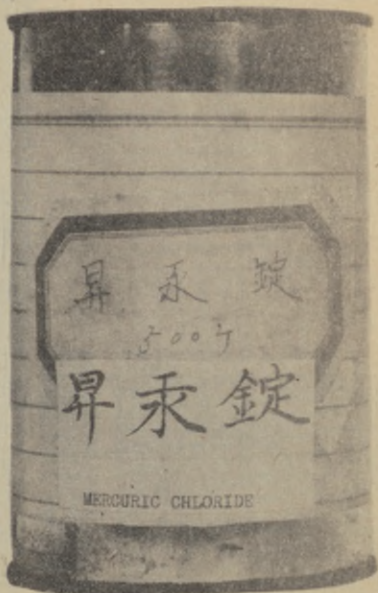 昇汞錠
500㌘
昇汞錠
MERCURIC CHLORIDE